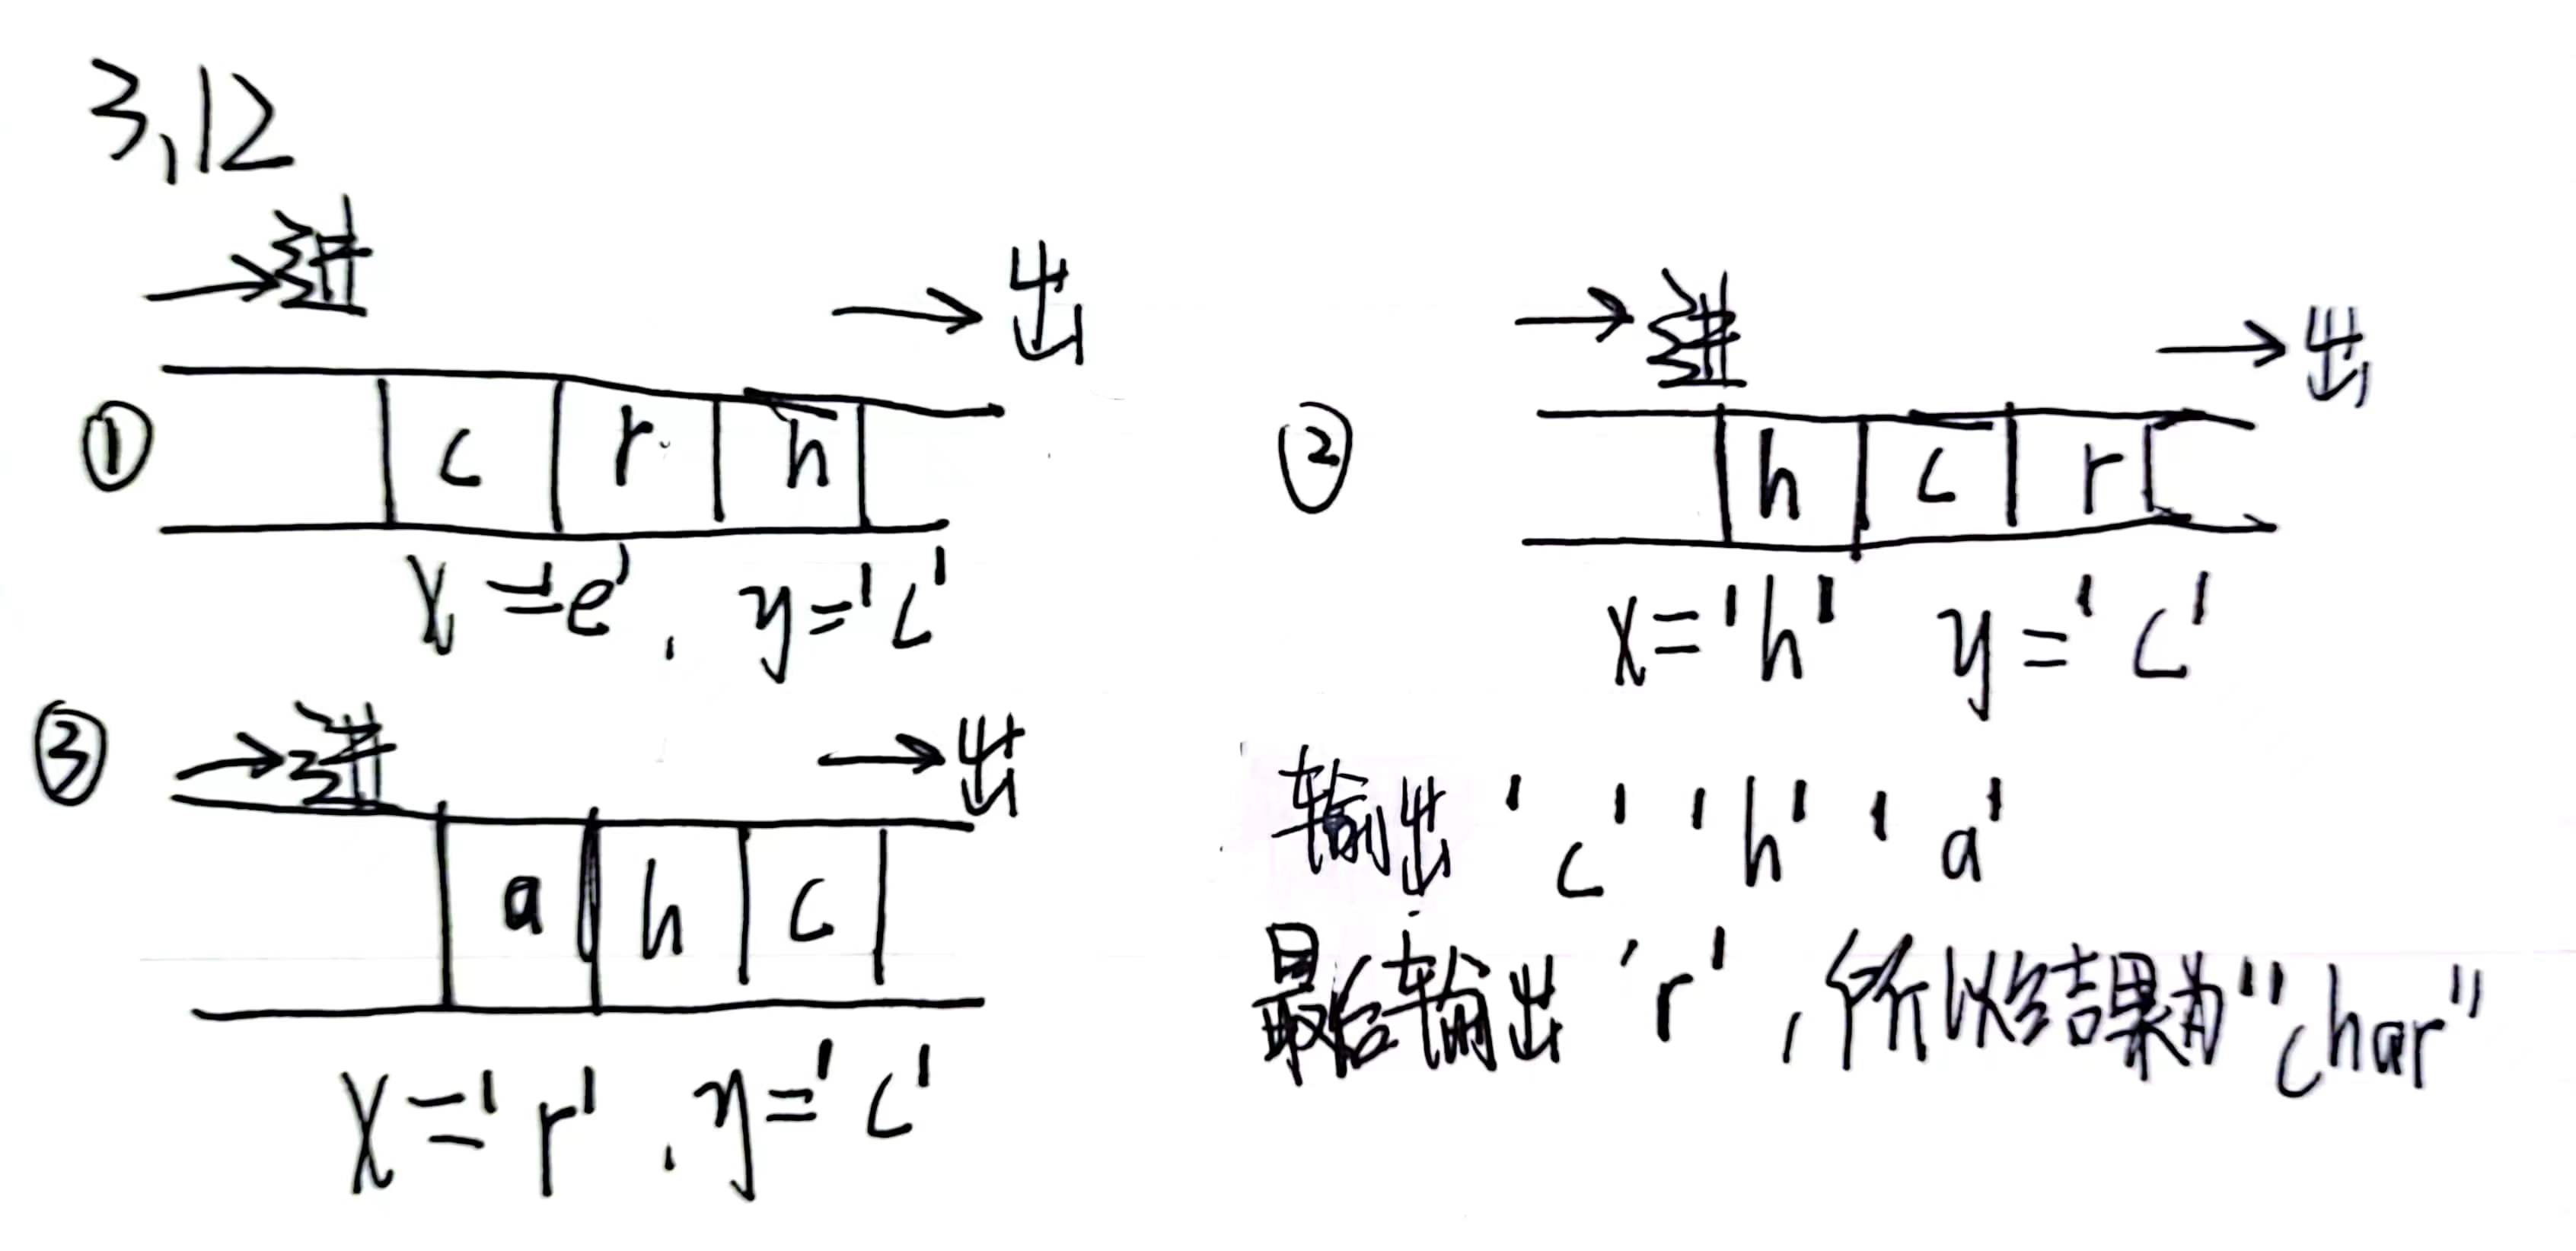 3,12
→进 →出
① c r h
x='e', y='c'
→进 →出
② h c r
x='h' y='c'
③ →进 →出
a h c
x='r', y='c'
输出 'c' 'h' 'a'
最后输出 'r', 所以结果为"char"